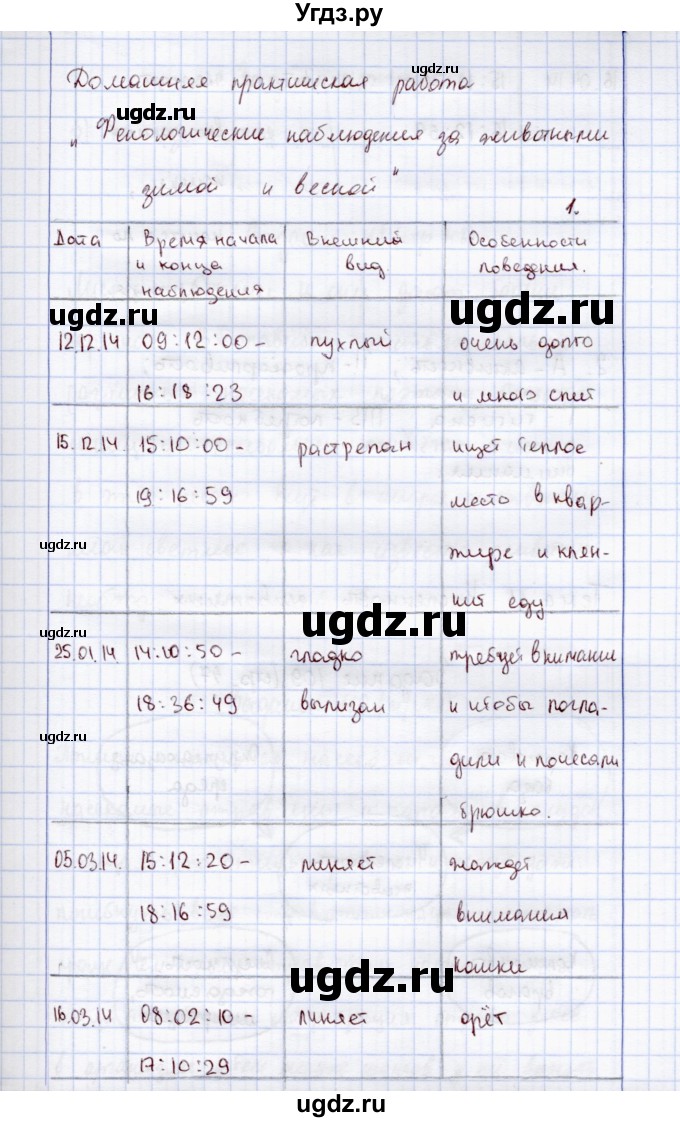 Угдз.ру
Домашняя практическая работа
„Фенологические наблюдения за животными
зимой и весной"
1.
Дата | Время начала и конца наблюдения | Внешний вид | Особенности поведения.
12.12.14 | 09:12:00 - | пухлый | очень долго
16:18:23 | и много спит
15.12.14 | 15:10:00 - | растрепан | ищет теплое
19:16:59 | место в квар-
тире и клян-
чит еду
25.01.14 | 14:10:50 - | гладко | требует внимания
18:36:49 | вылизан | и чтобы погла-
дили и почесали
брюшко.
05.03.14. | 15:12:20 - | линяет | жаждет
18:16:59 | внимания
кошки
16.03.14 | 08:02:10 - | линяет | орёт
17:10:29
ugdz.ru
ugdz.ru
ugdz.ru
ugdz.ru
ugdz.ru
ugdz.ru
ugdz.ru
ugdz.ru
ugdz.ru
ugdz.ru
ugdz.ru